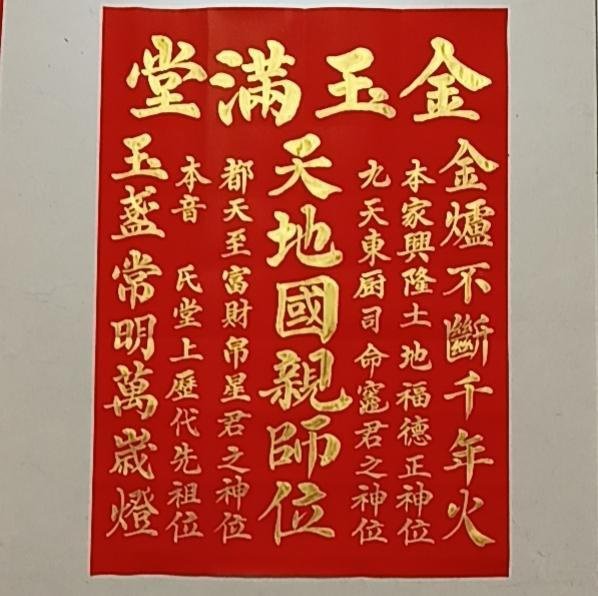 金玉滿堂
金爐不斷千年火
本家興隆土地福德正神位
九天東厨司命竈君之神位
天地國親師位
都天至富財帛星君之神位
本音 氏堂上歷代先祖位
玉盞常明萬歲燈